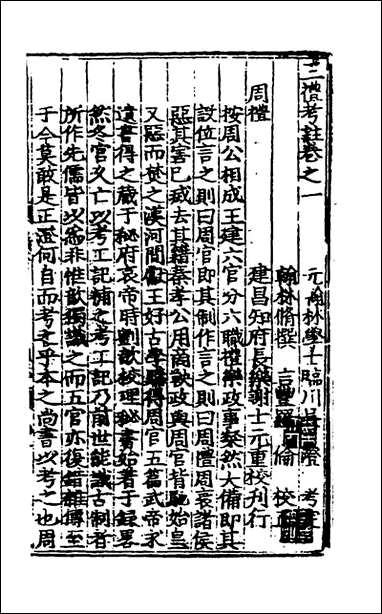 三禮考註卷之一
元翰林學士臨川吳澄考註
翰林脩撰吉豐羅倫校正
建昌知府長樂謝士元重校刊行
周禮
按周公相成王建六官分六職禮樂政事粲然大備即其
設位言之則曰周官即其制作言之則曰周禮周衰諸侯
惡其害已滅去其籍秦孝公用商鞅政與周官背馳始皇
又惡而焚之漢河間獻王好古學購得周官五篇武帝求
遺書得之藏于秘府哀帝時劉歆校理秘書始著于錄畧
然冬官久亡以考工記補之考工記乃前世能識古制者
所作先儒皆以為非惟歆獨識之而五官亦復錯雜傳至
于今莫敢是正澄何自而考之乎本之尚書以考之也周